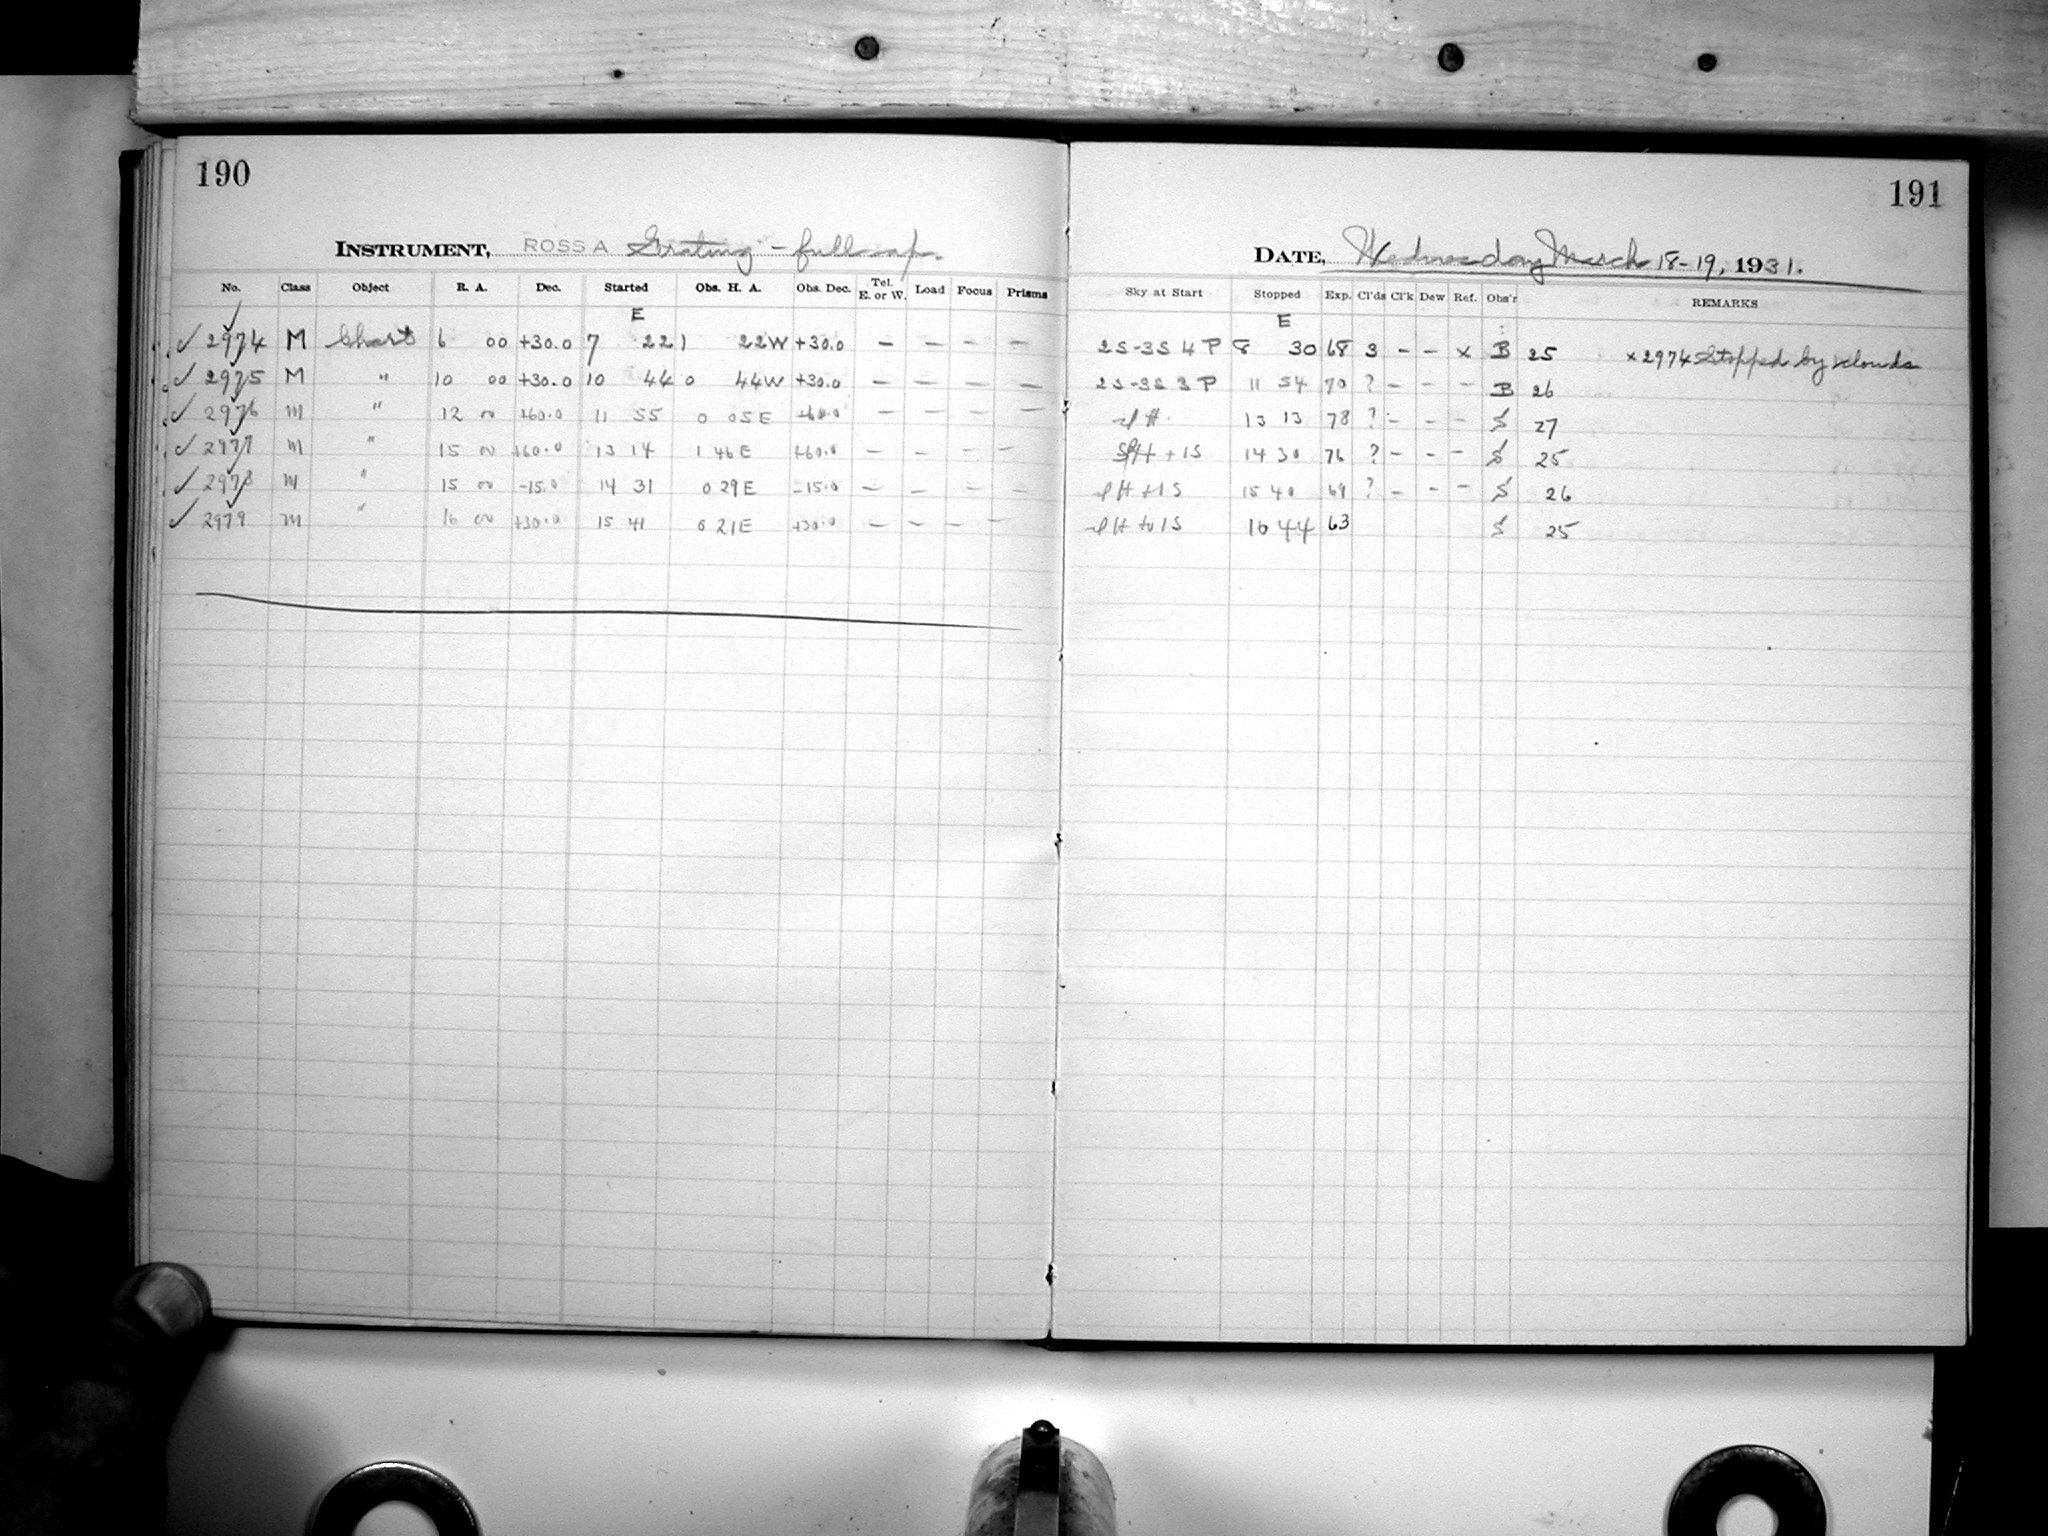 190
INSTRUMENT, ROSS A Grating - full ap.
No. Class Object R. A. Dec. Started Obs. H. A. Obs. Dec. Tel. E. or W. Load Focus Prisms
E
✓ 2974 M Chart 6 00 +30.0 7 22 1 22W +30.0 — — — — —
✓ 2975 M " 10 00 +30.0 10 44 0 44W +30.0 — — — — —
✓ 2976 M " 12 00 +60.0 11 55 0 05E +60.0 — — — — —
✓ 2977 M " 15 00 +60.0 13 14 1 46E +60.0 — — — — —
✓ 2978 M " 15 00 -15.0 14 31 0 29E -15.0 — — — — —
✓ 2979 M " 16 00 +30.0 15 41 0 21E +30.0 — — — — —
191
DATE, Wednesday March 18-19, 1931.
Sky at Start Stopped Exp. Cl'ds Cl'k Dew Ref. Obs'r REMARKS
E
2S-3S 4 P 8 30 68 3 - - x B 25 x 2974 Stopped by clouds
2S-3S 3 P 11 54 70 ? - - - B 26
H 13 13 78 ? - - - S 27
H + 1S 14 30 76 ? - - - S 25
H + 1S 15 40 69 ? - - - S 26
H to 1S 16 44 63 S 25